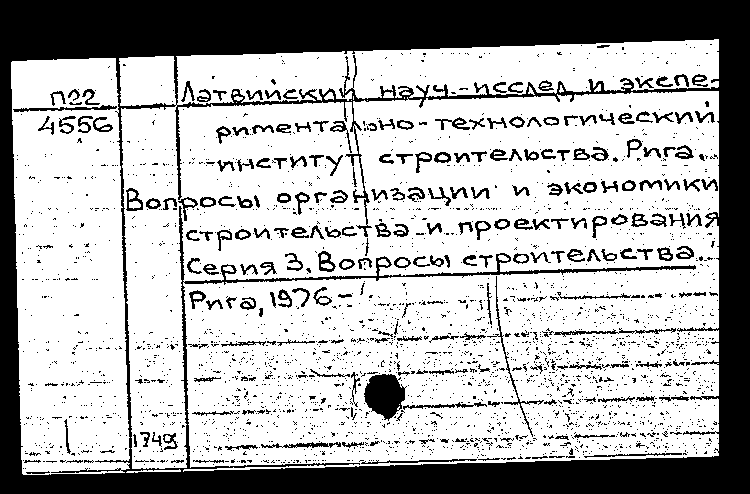 П22 Латвийский науч.-исслед. и экспе-
4556 риментально-технологический
институт строительства. Рига.
Вопросы организации и экономики
строительства и проектирования
Серия 3. Вопросы строительства.
Рига, 1976-